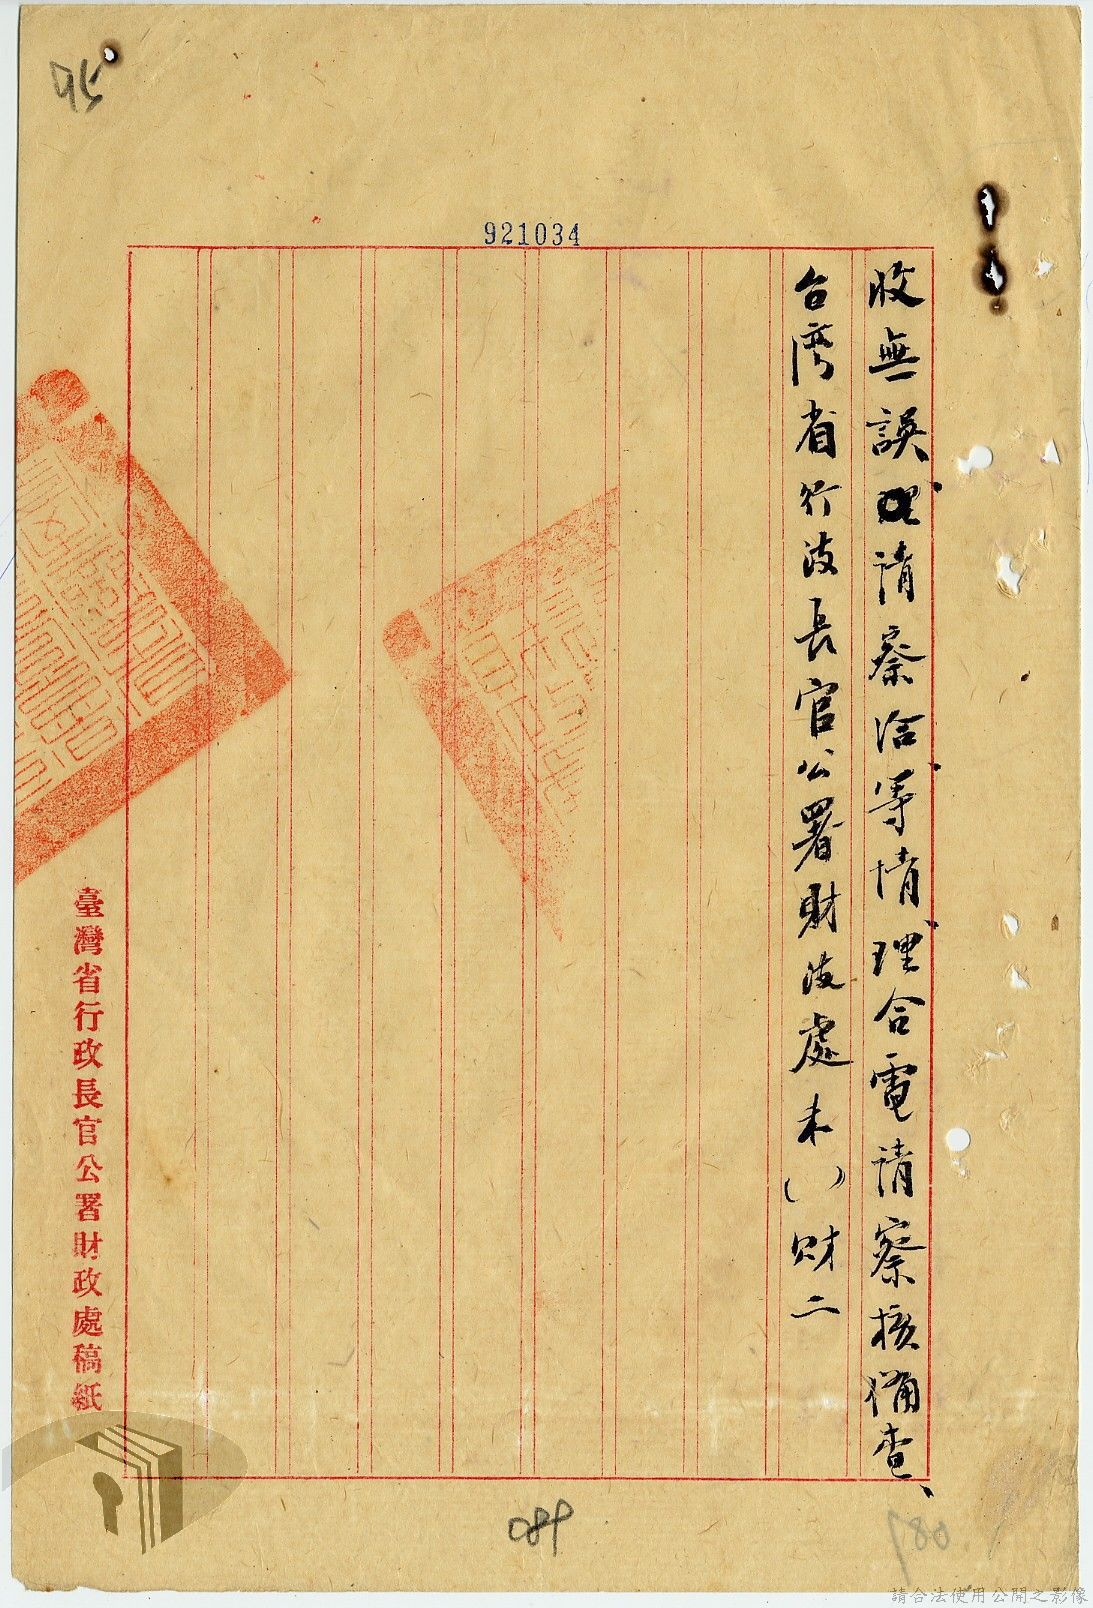 921034
收無誤、請察洽、等情、理合電請察核備查、
台灣省行政長官公署財政處未（）財二
臺灣省行政長官公署財政處稿紙
089
請合法使用公開之影像